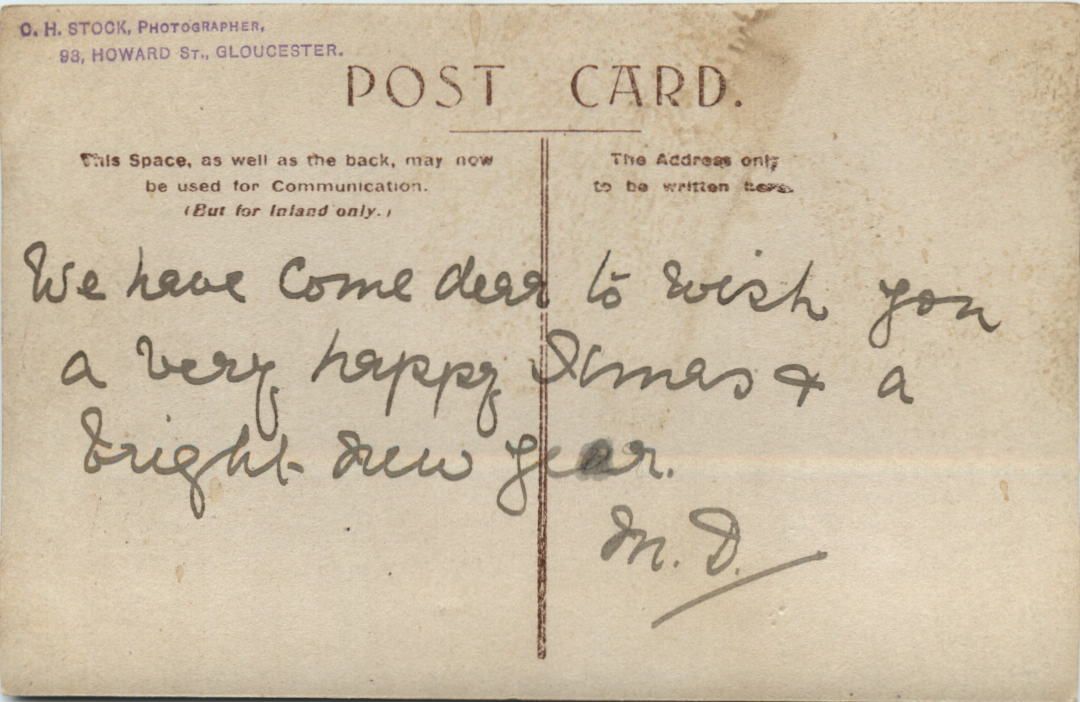 C. H. STOCK, PHOTOGRAPHER,
93, HOWARD ST., GLOUCESTER.
POST CARD.
This Space, as well as the back, may now
be used for Communication.
(But for Inland only.)
The Address only
to be written here.
We have come dear to wish you
a very happy Xmas & a
bright New year.
M. D.